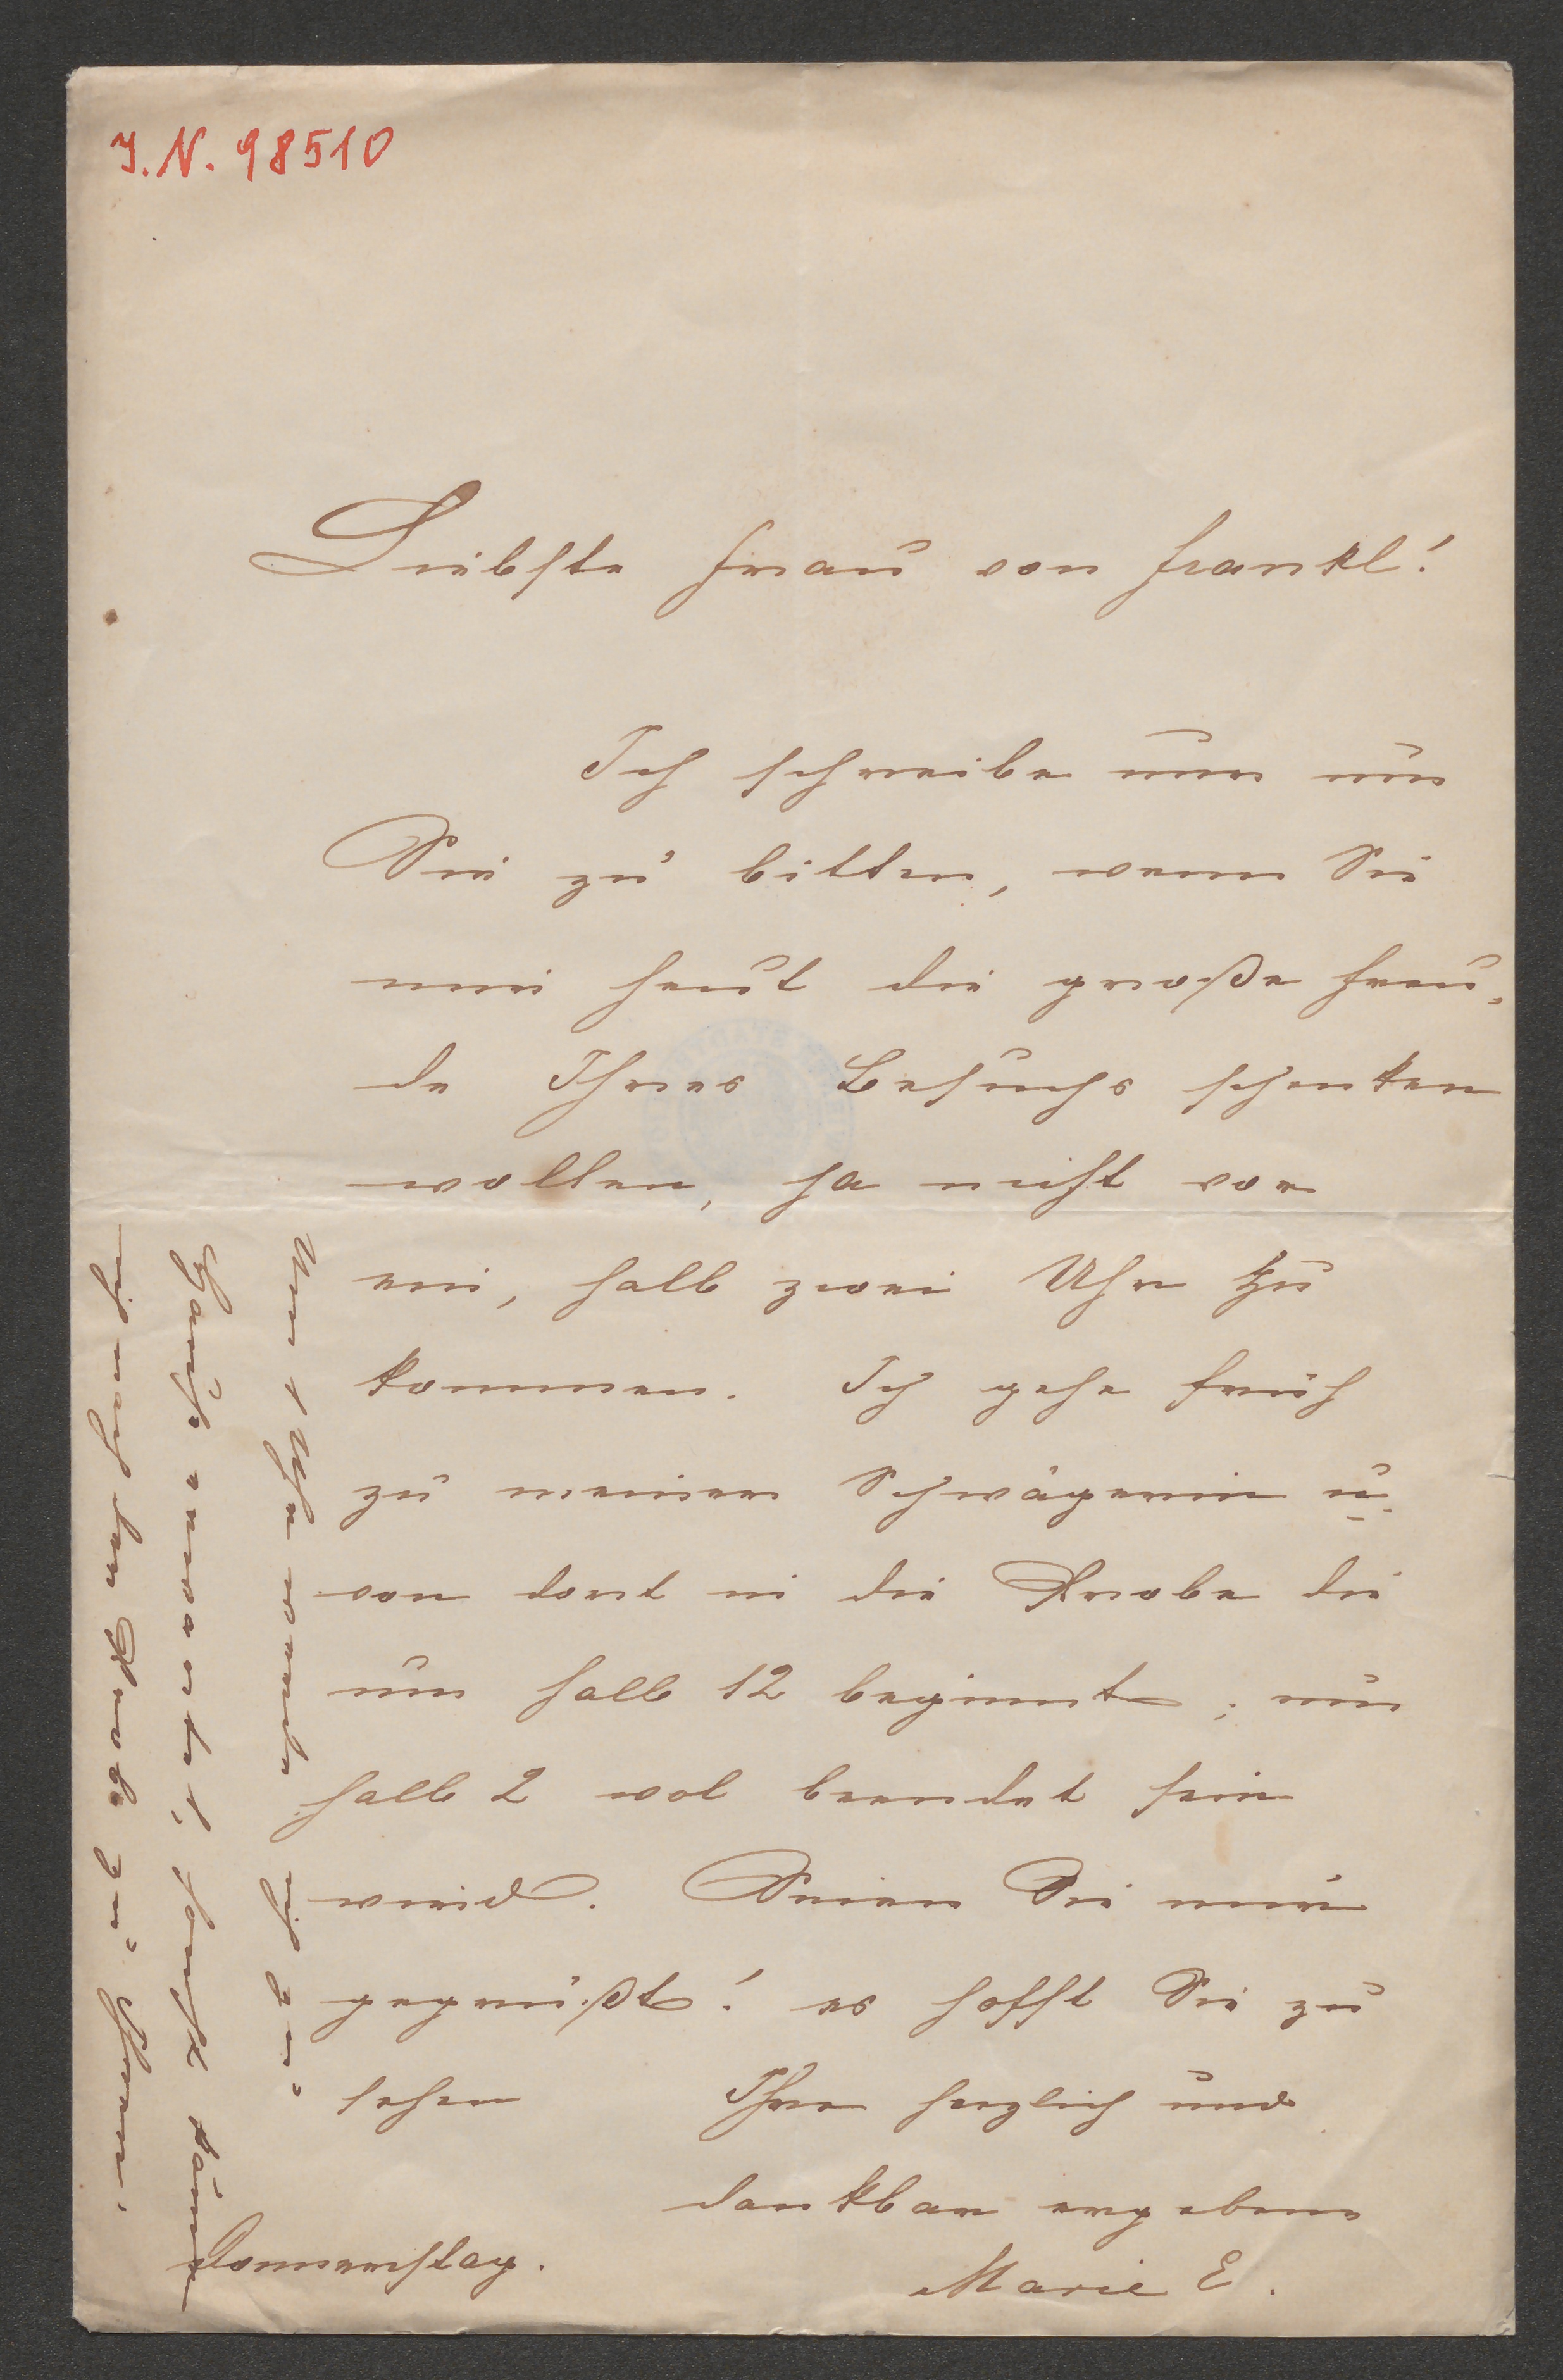 J. N. 98510
Liebste Frau von Frankl!
Ich schreibe nur um
Sie zu bitten, wenn Sie
mir heut die große Freu-
de Ihres Besuchs schenken
wollen, ja nicht vor
ein, halb zwei Uhr zu
kommen. Ich gehe früh
zu meiner Schwägerin u.
von dort in die Probe die
um halb 12 beginnt; um
halb 2 wol beendet sein
wird. Seien Sie mir
gegrüßt! es hofft Sie zu
sehen Ihre herzlich und
dankbar ergebene
Marie E.
Donnerstag.
Um 1 Uhr werde ich zu
Hause erwartet, sonst käme
ich nach der Probe zu Ihnen.